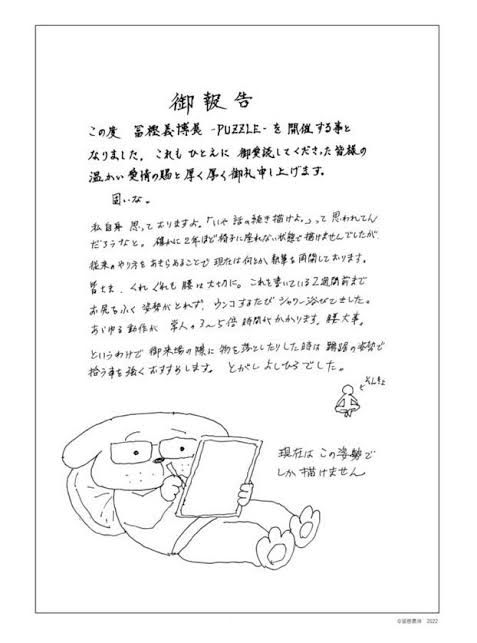 御報告
この度 冨樫義博展 -PUZZLE- を開催する事と
なりました。これもひとえに 御愛読してくださった皆様の
温かい愛情の賜と厚く厚く御礼申し上げます。
固いな。
私自身 思っておりますよ。「いや 話の続き描けよ。」って思われてん
だろうなと。確かに2年ほど椅子に座れない状態で描けませんでしたが、
従来のやり方をあきらめることで 現在は何とか執筆を再開しております。
皆さま、くれぐれも 腰は大切に。これを書いている2週間前まで
お尻をふく姿勢がとれず、ウンコするたび シャワー浴びてました。
あらゆる動作が 常人の3〜5倍 時間がかかります。腰大事。
というわけで 御来場の際に 物を落としたりした時は 蹲踞の姿勢で
拾う事を強くおすすめします。 とがしよしひろでした。
そんきょ
現在は この姿勢で
しか 描けません
©冨樫義博 2022